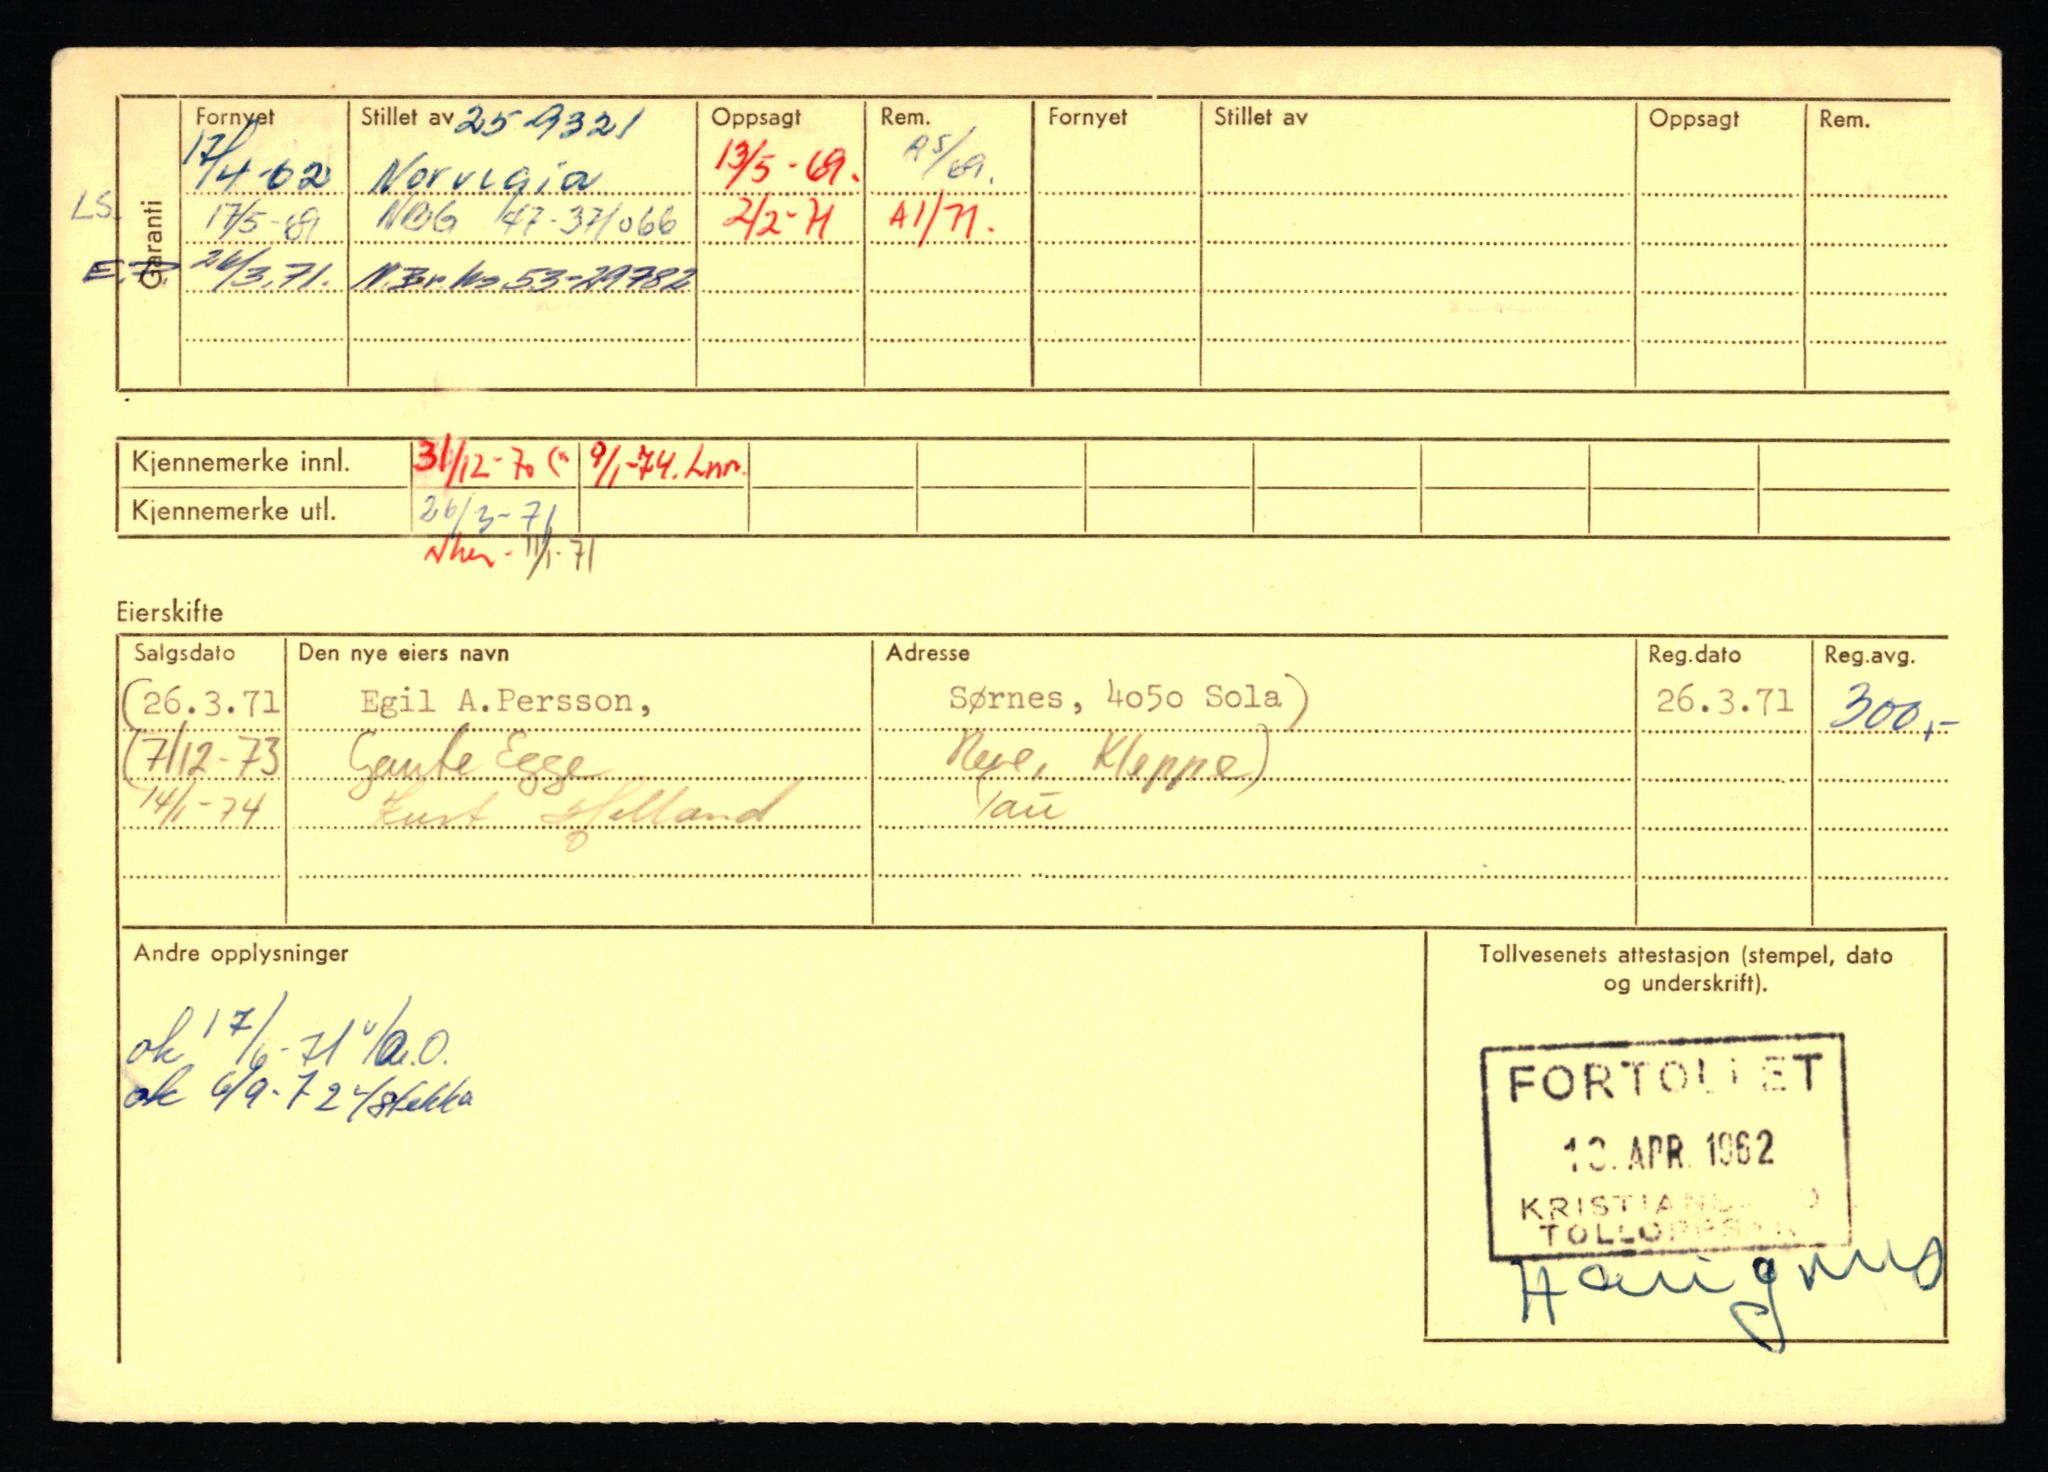 Garanti
Fornyet Stillet av 25-9321 Oppsagt Rem. Fornyet Stillet av Oppsagt Rem.
17/4-62 Norvegia 13/5-69. A5/69.
LS. 17/5-69 NBG 47-371066 2/2-71 A1/71.
26/3.71. 53-29782
Kjennemerke innl. 31/12-70 9/1-74.
Kjennemerke utl. 26/3-71
11/1-71
Eierskifte
Salgsdato Den nye eiers navn Adresse Reg.dato Reg.avg.
(26.3.71 Egil A.Persson, Sørnes, 4050 Sola) 26.3.71 300,-
(7/12-73 Gaute Egge Kleppe)
14/1-74 Kurt Helland Tau
Andre opplysninger
Tollvesenets attestasjon (stempel, dato
og underskrift).
ok 17/6-71 v/
ok 6/9-72 v/
FORTOLLET
APR. 1962
KRISTIANSAND
TOLLOPPSYN